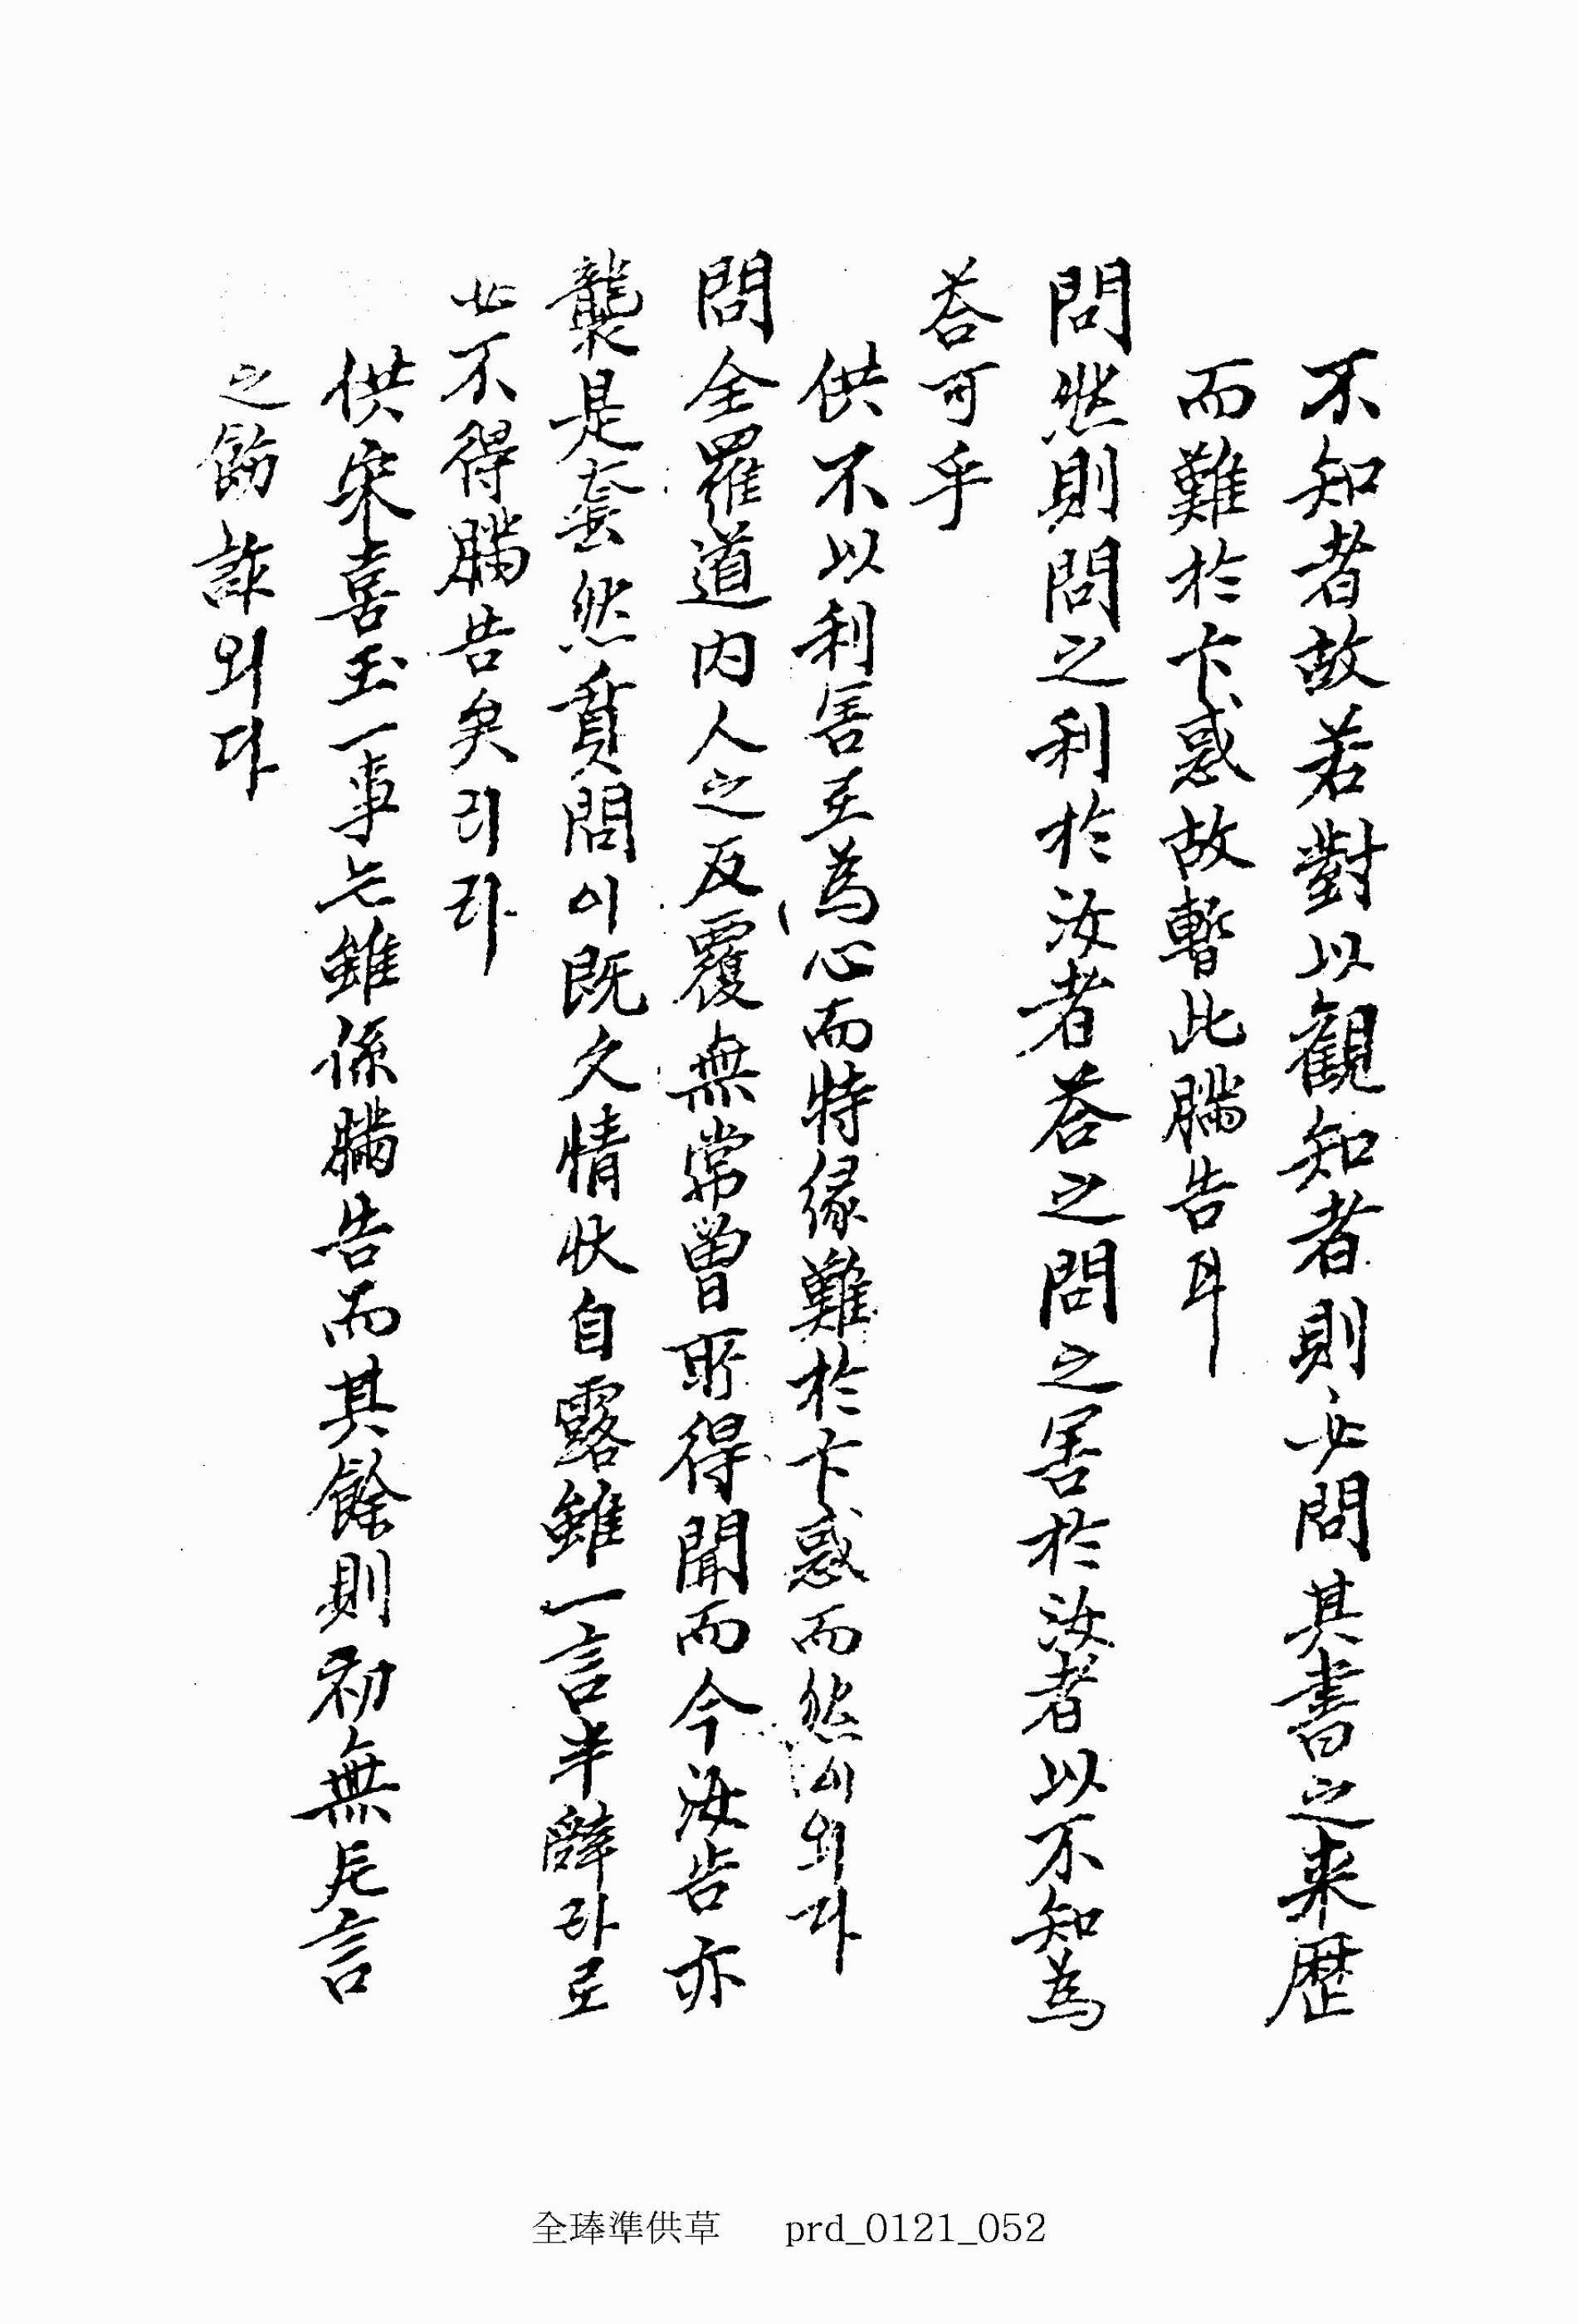 不知者故若對以観知者則必問其書之来歷
而難於卞惑故暫此瞞告耳
問然則問之利於汝者荅之問之害於汝者以不知為
荅可乎
供不以利害主為心而特緣難於卞惑而然이외다
問全羅道內人之反覆無常曾所得聞而今汝告亦
襲是套然質問이既久情狀自露雖一言半辭라로
必不得瞞告矣리라
供宋喜玉一事는雖係瞞告而其餘則初無片言
之飾詐외다
全琫準供草 prd_0121_052